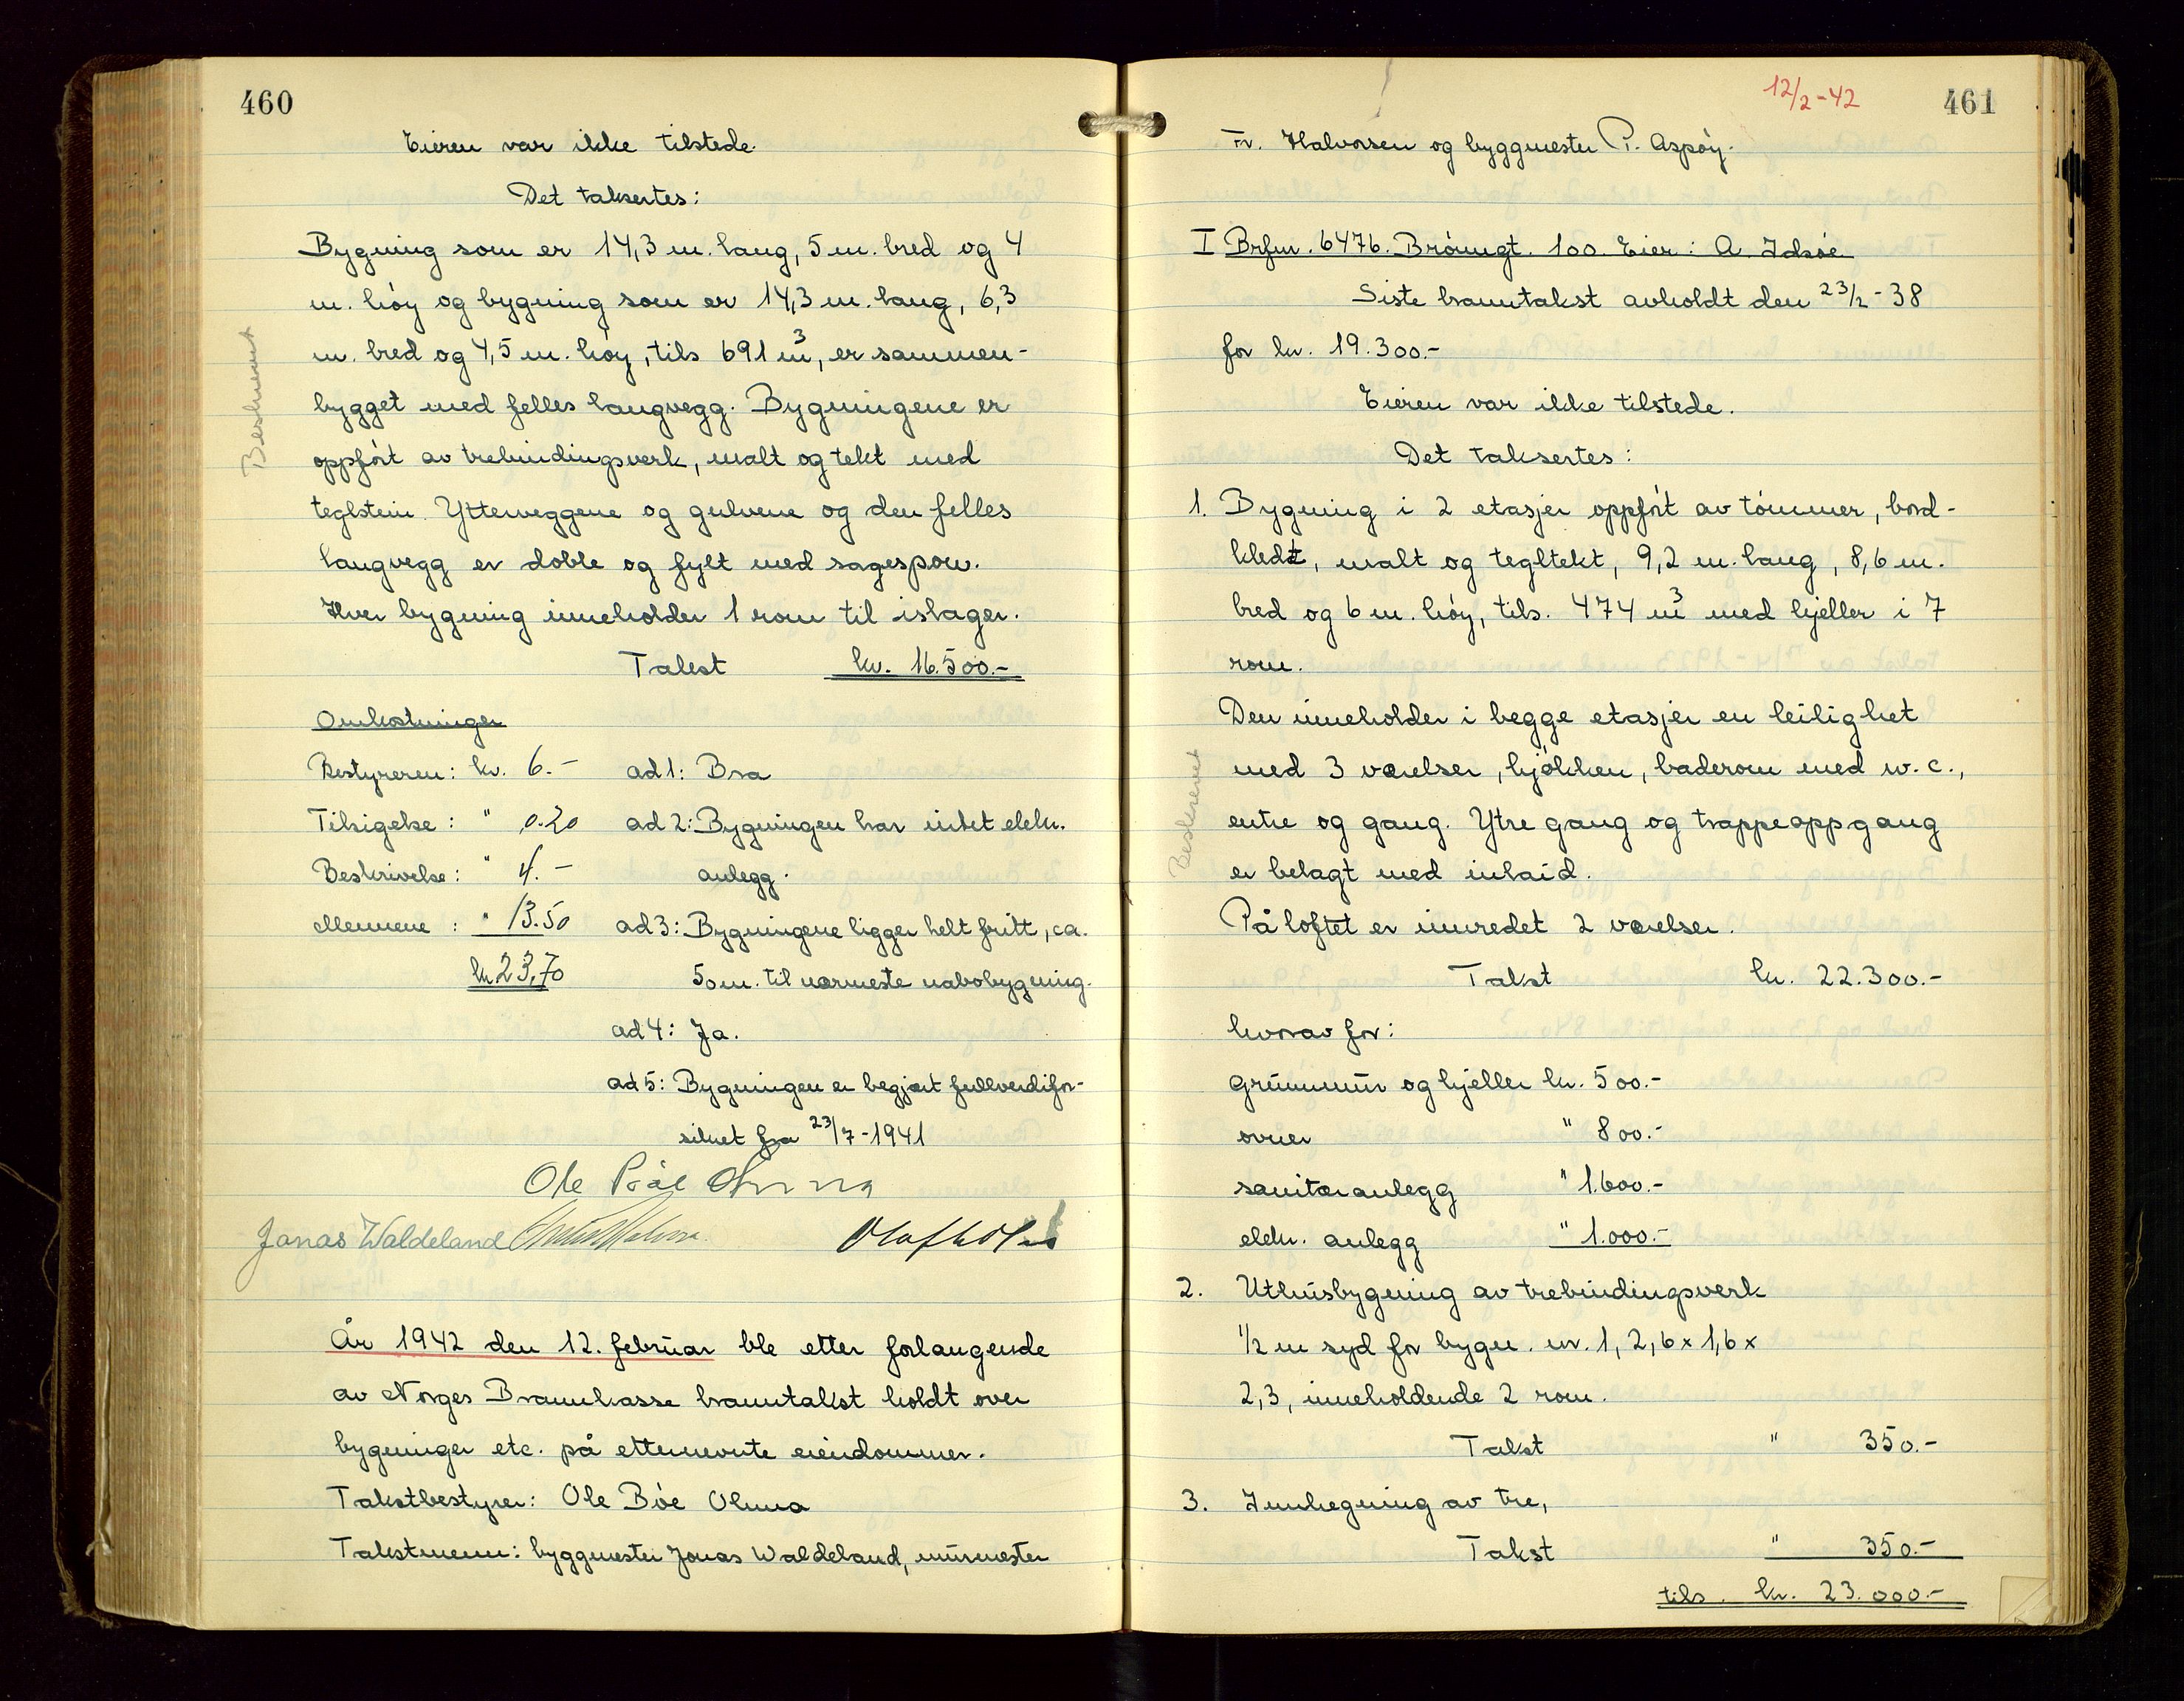 460
Eieren var ikke tilstede.
Det taksertes:
Bygning som er 14,3 m. lang, 5 m. bred og 4
m. høy og bygning som er 14,3 m. lang, 6,3
m. bred og 4,5 m. høy, tils 691 m³, er sammen-
bygget med felles langvegg. Bygningene er
oppført av trebindingsverk, malt og tekt med
teglstein. Ytterveggene og gulvene og den felles
langvegg er doble og fylt med sagespon.
Hver bygning inneholder 1 rom til islager.
Takst kr. 16.500.-
Beskrevet
Omkostninger
Bestyreren: kr. 6.- ad 1: Bra
Tilsigelse: " 0.20 ad 2: Bygningen har intet elektr.
Beskrivelse: " 4.- anlegg.
Mennene: " 13.50 ad 3: Bygningene ligger helt fritt, ca.
kr 23,70 50 m. til nærmeste nabobygning.
ad 4: Ja.
ad 5: Bygningen er begjært fullverdifor-
sikret fra 23/7-1941
Jonas Waldeland
År 1942 den 12. februar ble etter forlangende
av Norges Brannkasse branntakst holdt over
bygninger etc. på etternevnte eiendommer.
Takstbestyrer: Ole Bøe Olsma
Takstmenn: byggmester Jonas Waldeland, murmester
12/2-42
461
Fr. Halvorsen og byggmester P. Aspøy.
I Brfnr. 6476. Brønngt. 100. Eier: A. Idsøe
Siste branntakst avholdt den 23/2-38
for kr. 19.300.-
Eieren var ikke tilstede.
Det taksertes:
1. Bygning i 2 etasjer oppført av tømmer, bord-
kledt, malt og tegltekt, 9,2 m. lang, 8,6 m.
bred og 6 m. høy, tils. 474 m³ med kjeller i 7
rom.
Den inneholder i begge etasjer en leilighet
med 3 værelser, kjøkken, baderom med w.c.,
entre og gang. Ytre gang og trappeoppgang
er belagt med inlaid.
På loftet er innredet 2 værelser.
Takst kr. 22.300.-
Beskrevet
hvorav for:
grunnmur og kjeller kr. 500.-
ovner " 800.-
sanitæranlegg " 1.600.-
elektr. anlegg " 1.000.-
2. Uthusbygning av trebindingsverk
1/2 m syd for bygn. nr. 1, 2,6 x 1,6 x
2,3, inneholdende 2 rom.
Takst " 350.-
3. Innhegning av tre,
Takst " 350.-
tils. kr. 23.000.-